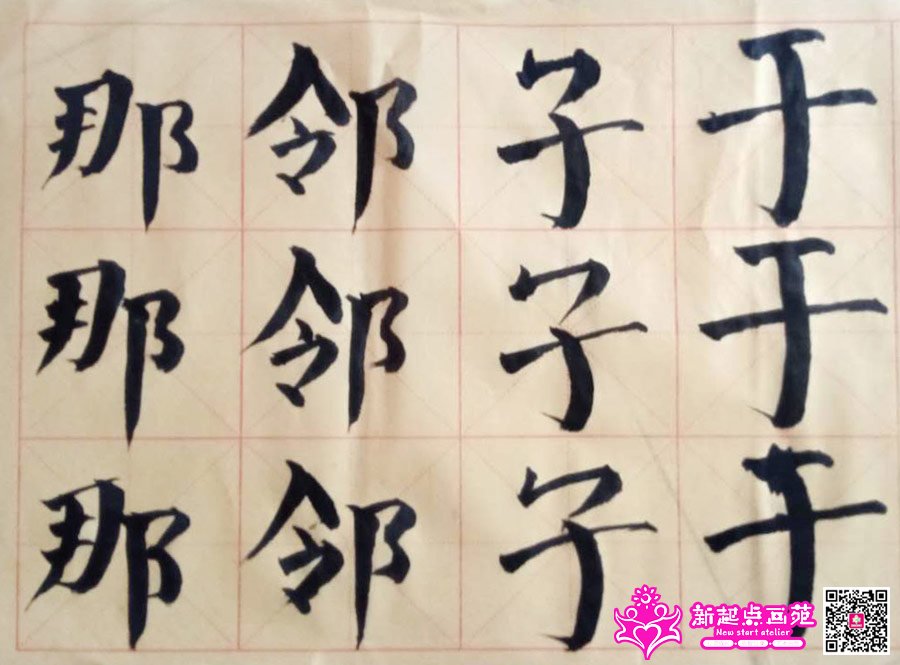 那 邻 子 于
那 邻 子 于
那 邻 子 于
新起点画苑
New start atelier